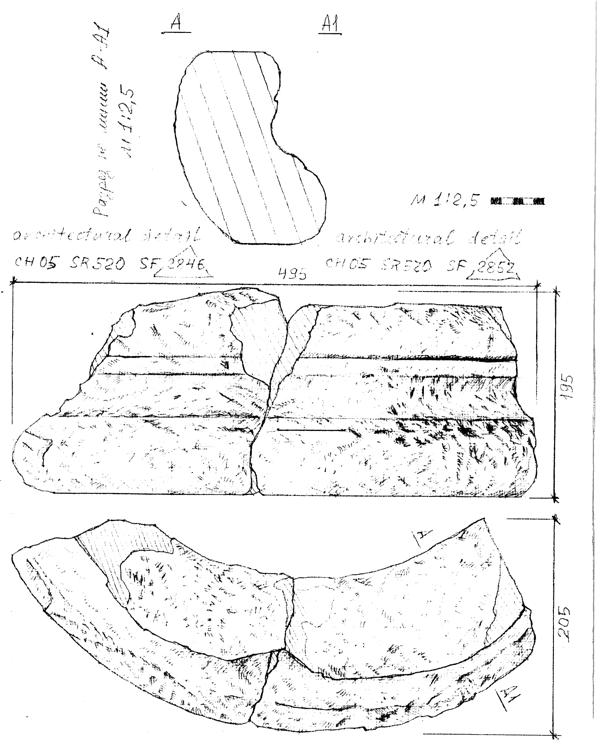 A A1
Разрез по линии А-А1
М 1:2,5
М 1:2,5
architectural detail
CH05 SR520 SF 2846
architectural detail
CH05 SR520 SF 2852
495
195
A
205
A1